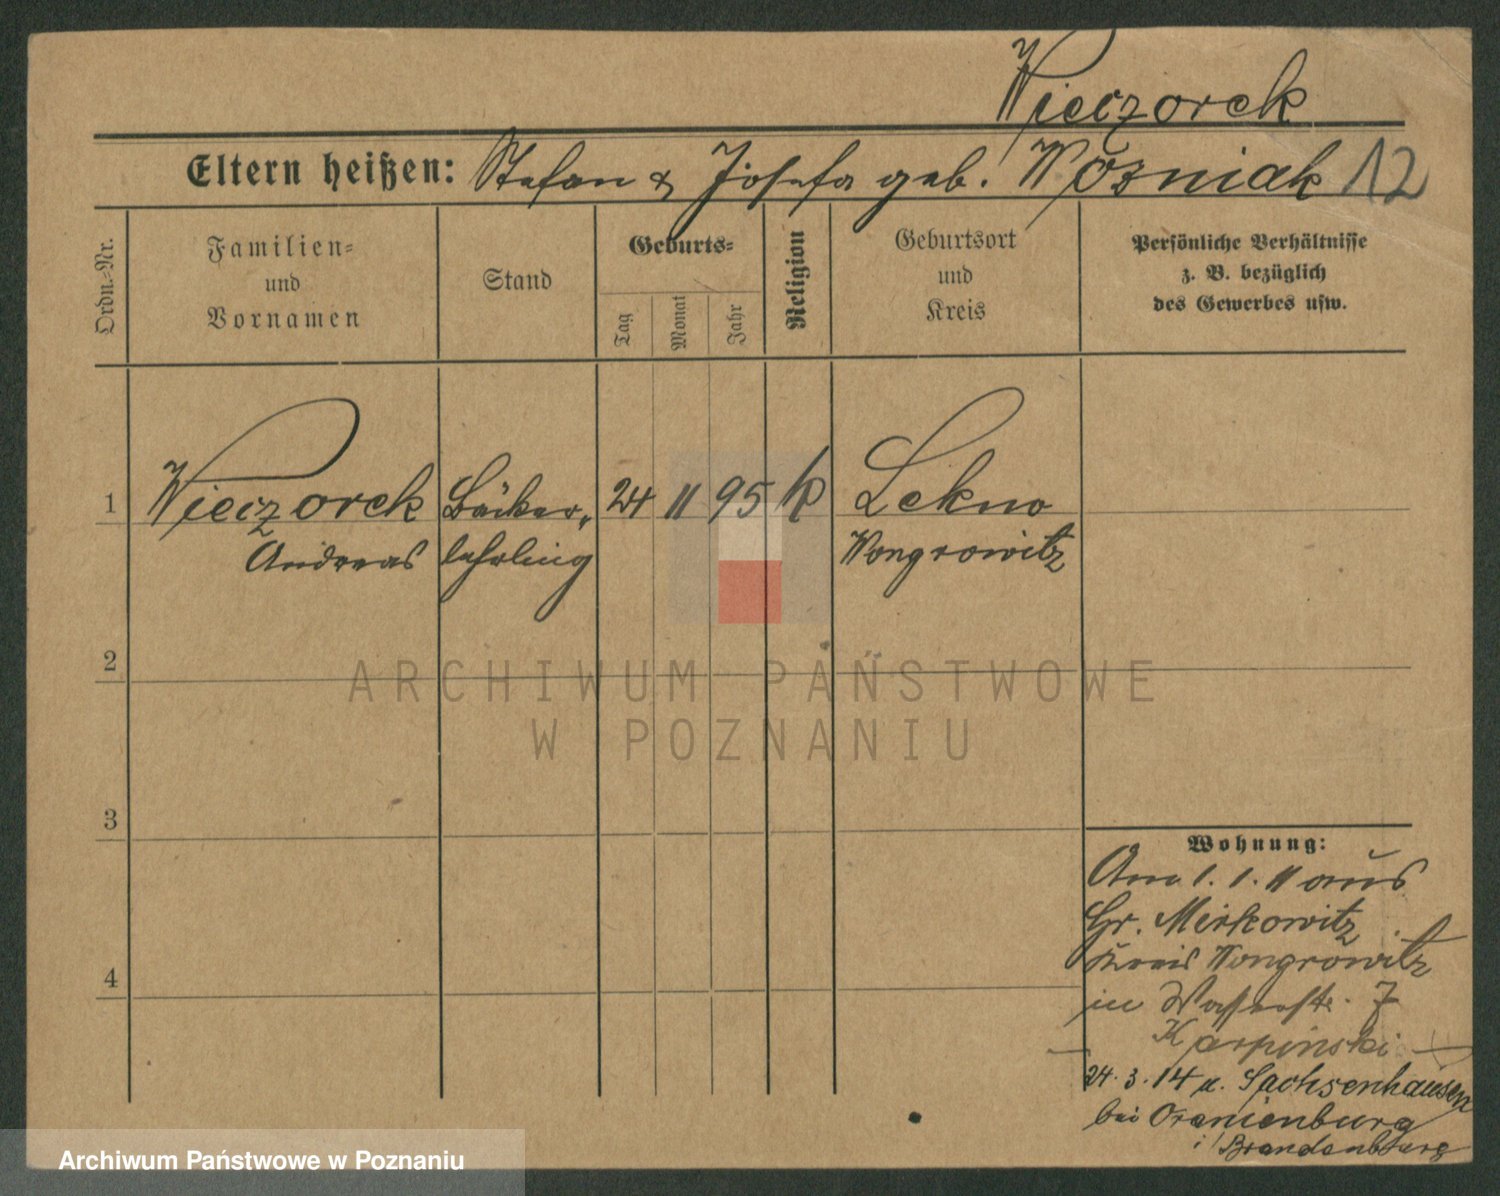 Wieczorek
Eltern heißen: Stefan & Josefa geb. Wozniak 12
Ordn.-Nr.
Familien-
und
Vornamen
Stand
Geburts-
Tag
Monat
Jahr
Religion
Geburtsort
und
Kreis
Persönliche Verhältnisse
z. B. bezüglich
des Gewerbes usw.
1 Wieczorek Bäcker- 24 11 95 k Lekno
Andreas lehrling Wongrowitz
2
ARCHIWUM PAŃSTWOWE
W POZNANIU
3
4
Wohnung:
Am 1. 1. 11 aus
Gr. Mirkowitz
Kreis Wongrowitz
in Wasserstr. 7
Karpinski
24. 3. 14 n. Sachsenhausen
bei Oranienburg
i/Brandenburg
Archiwum Państwowe w Poznaniu